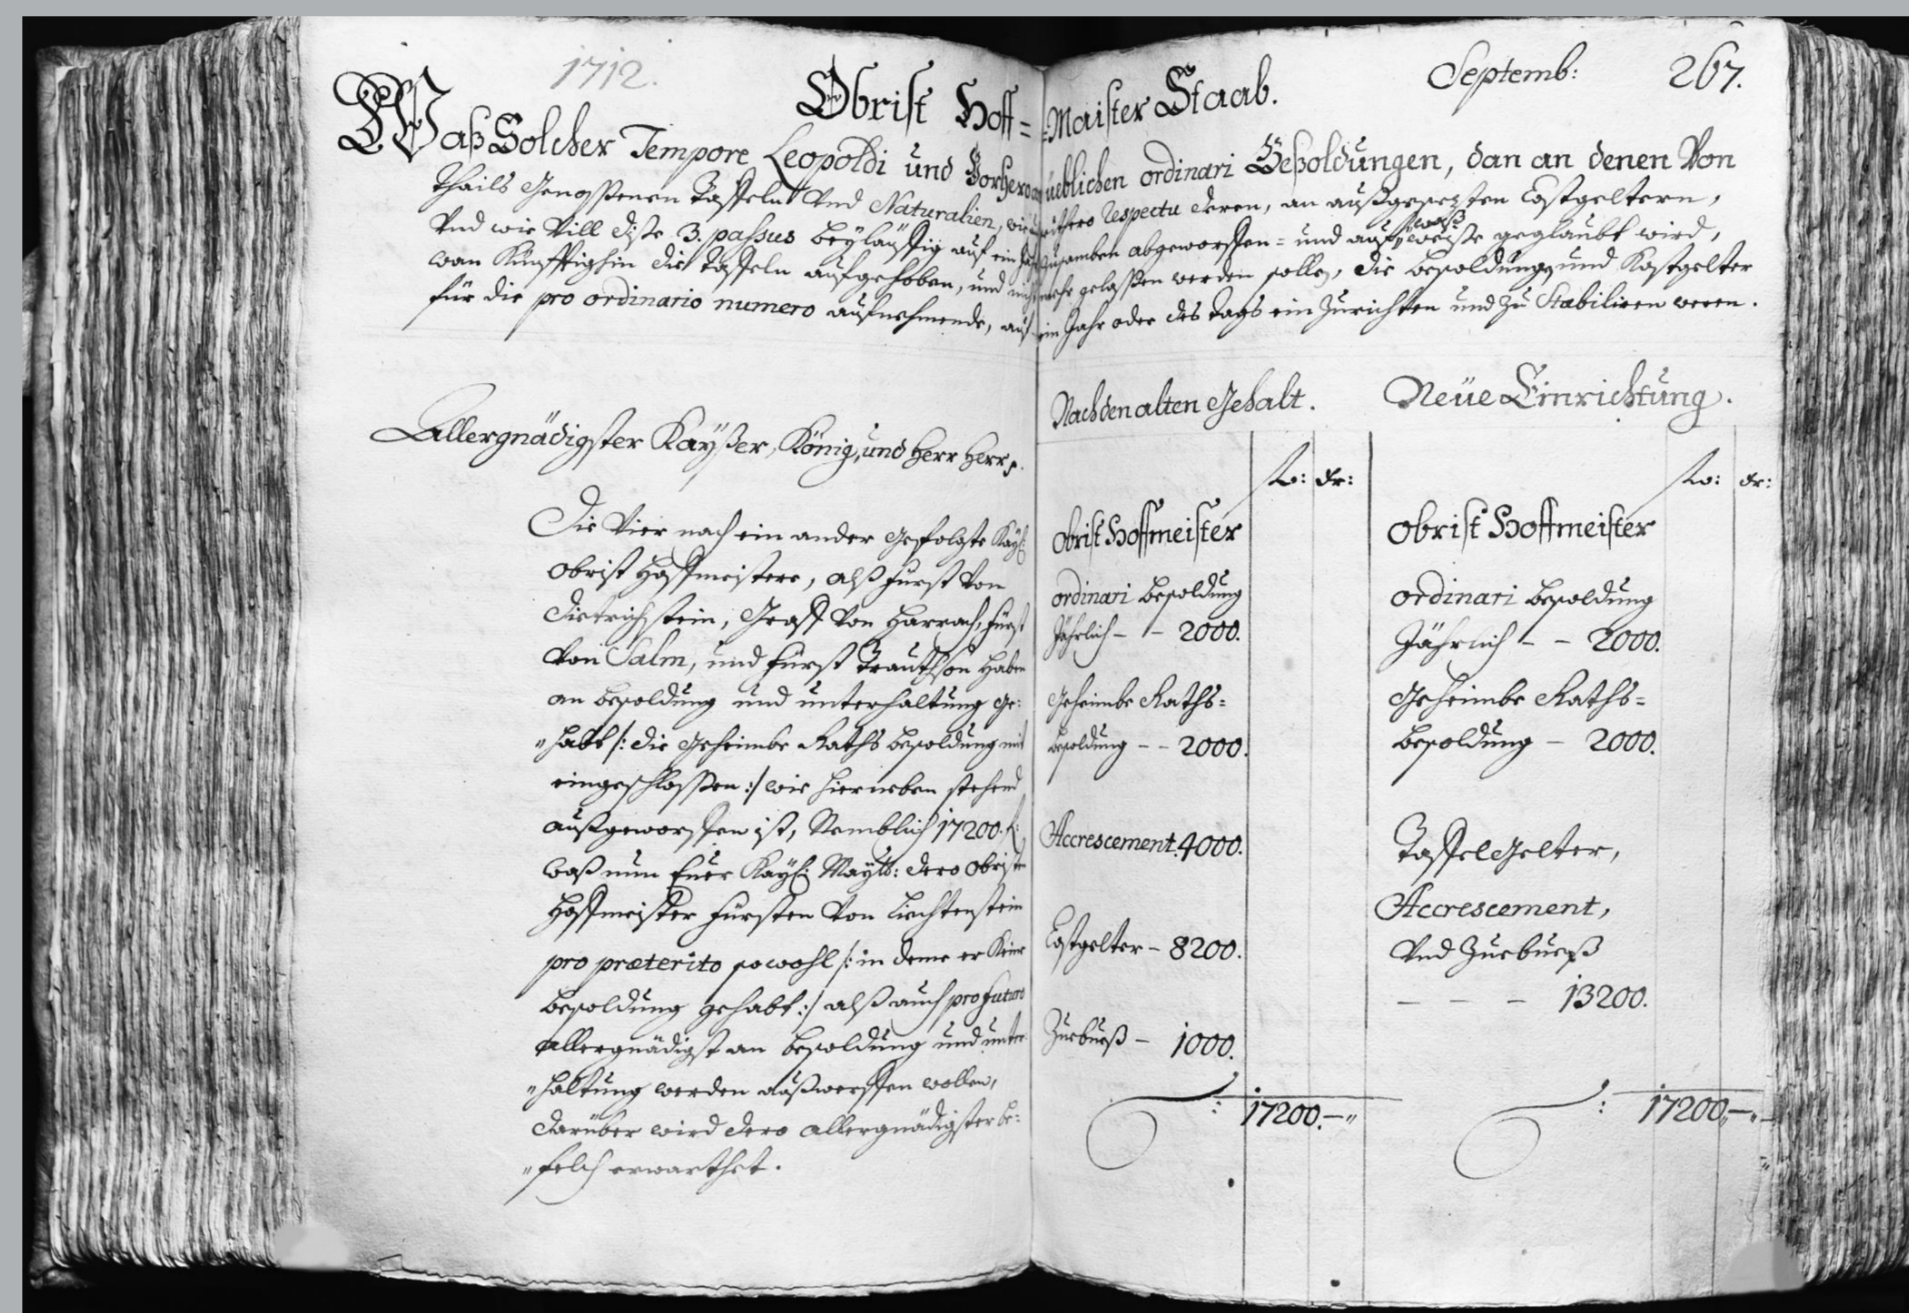 1712.
Septemb: 267.
Obrist Hoff=Maister Staab.
Waß Solcher Tempore Leopoldi und Vorhero üeblichen ordinari Beßoldungen, dan an denen Von
Thails Genoßenen Taffeln Vnd Naturalien, wie respectu deren, an außgesezten Costgeltern,
Vnd wie Vill dise 3. passus beyläuffig auf ein Jahr zusamben abgeworffen= und auf waß weise geglaubt wird,
wan Künfftighin die Taffeln aufgehoben, und nicht mehr gelaßen werden solle, die besoldung und Kostgelter
für die pro ordinario numero aufnehmende, auf ein Jahr oder des tags einzurichten und zu Stabiliren weren.
Allergnädigster Kayßer, König, und Herr Herr
Die Vier nach ein ander gefolgte Kay:
Obrist Hoffmeistere, alß Fürst Von
Dietrichstein, Graff Von Harrach, Fürst
Von Salm, und Fürst Trauthson haben
an besoldung und unterhaltung ge=
"habt /: die Geheimbe Raths besoldung mit
eingeschloßen :/ wie hierneben stehend
außgeworffen ist, Nemblich 17200. f:
waß nun Euer Kay: Maytt: dero Obrist
Hoffmeister Fürsten Von Liechtenstein
pro præterito sowohl /: in deme er Keine
besoldung gehabt :/ alß auch pro futuro
allergnädigst an besoldung und unter
"haltung werden außwerffen wollen,
darüber wird dero allergnädigster be=
"felch erwarthet.
Nach den alten Gehalt.
fl: Xr:
Obrist Hoffmeister
ordinari besoldung
Jährlich – – 2000.
Geheimbe Raths=
besoldung – – 2000.
Accrescement. 4000.
Costgelter – 8200.
Zuebueß – 1000.
: 17200.–"
Neüe Einrichtung.
fl: Xr:
Obrist Hoffmeister
ordinari besoldung
Jährlich – – 2000.
Geheimbe Raths=
besoldung – 2000.
Taffelgelter,
Accrescement,
Vnd Zuebueß
– – – 13200.
: 17200.–"